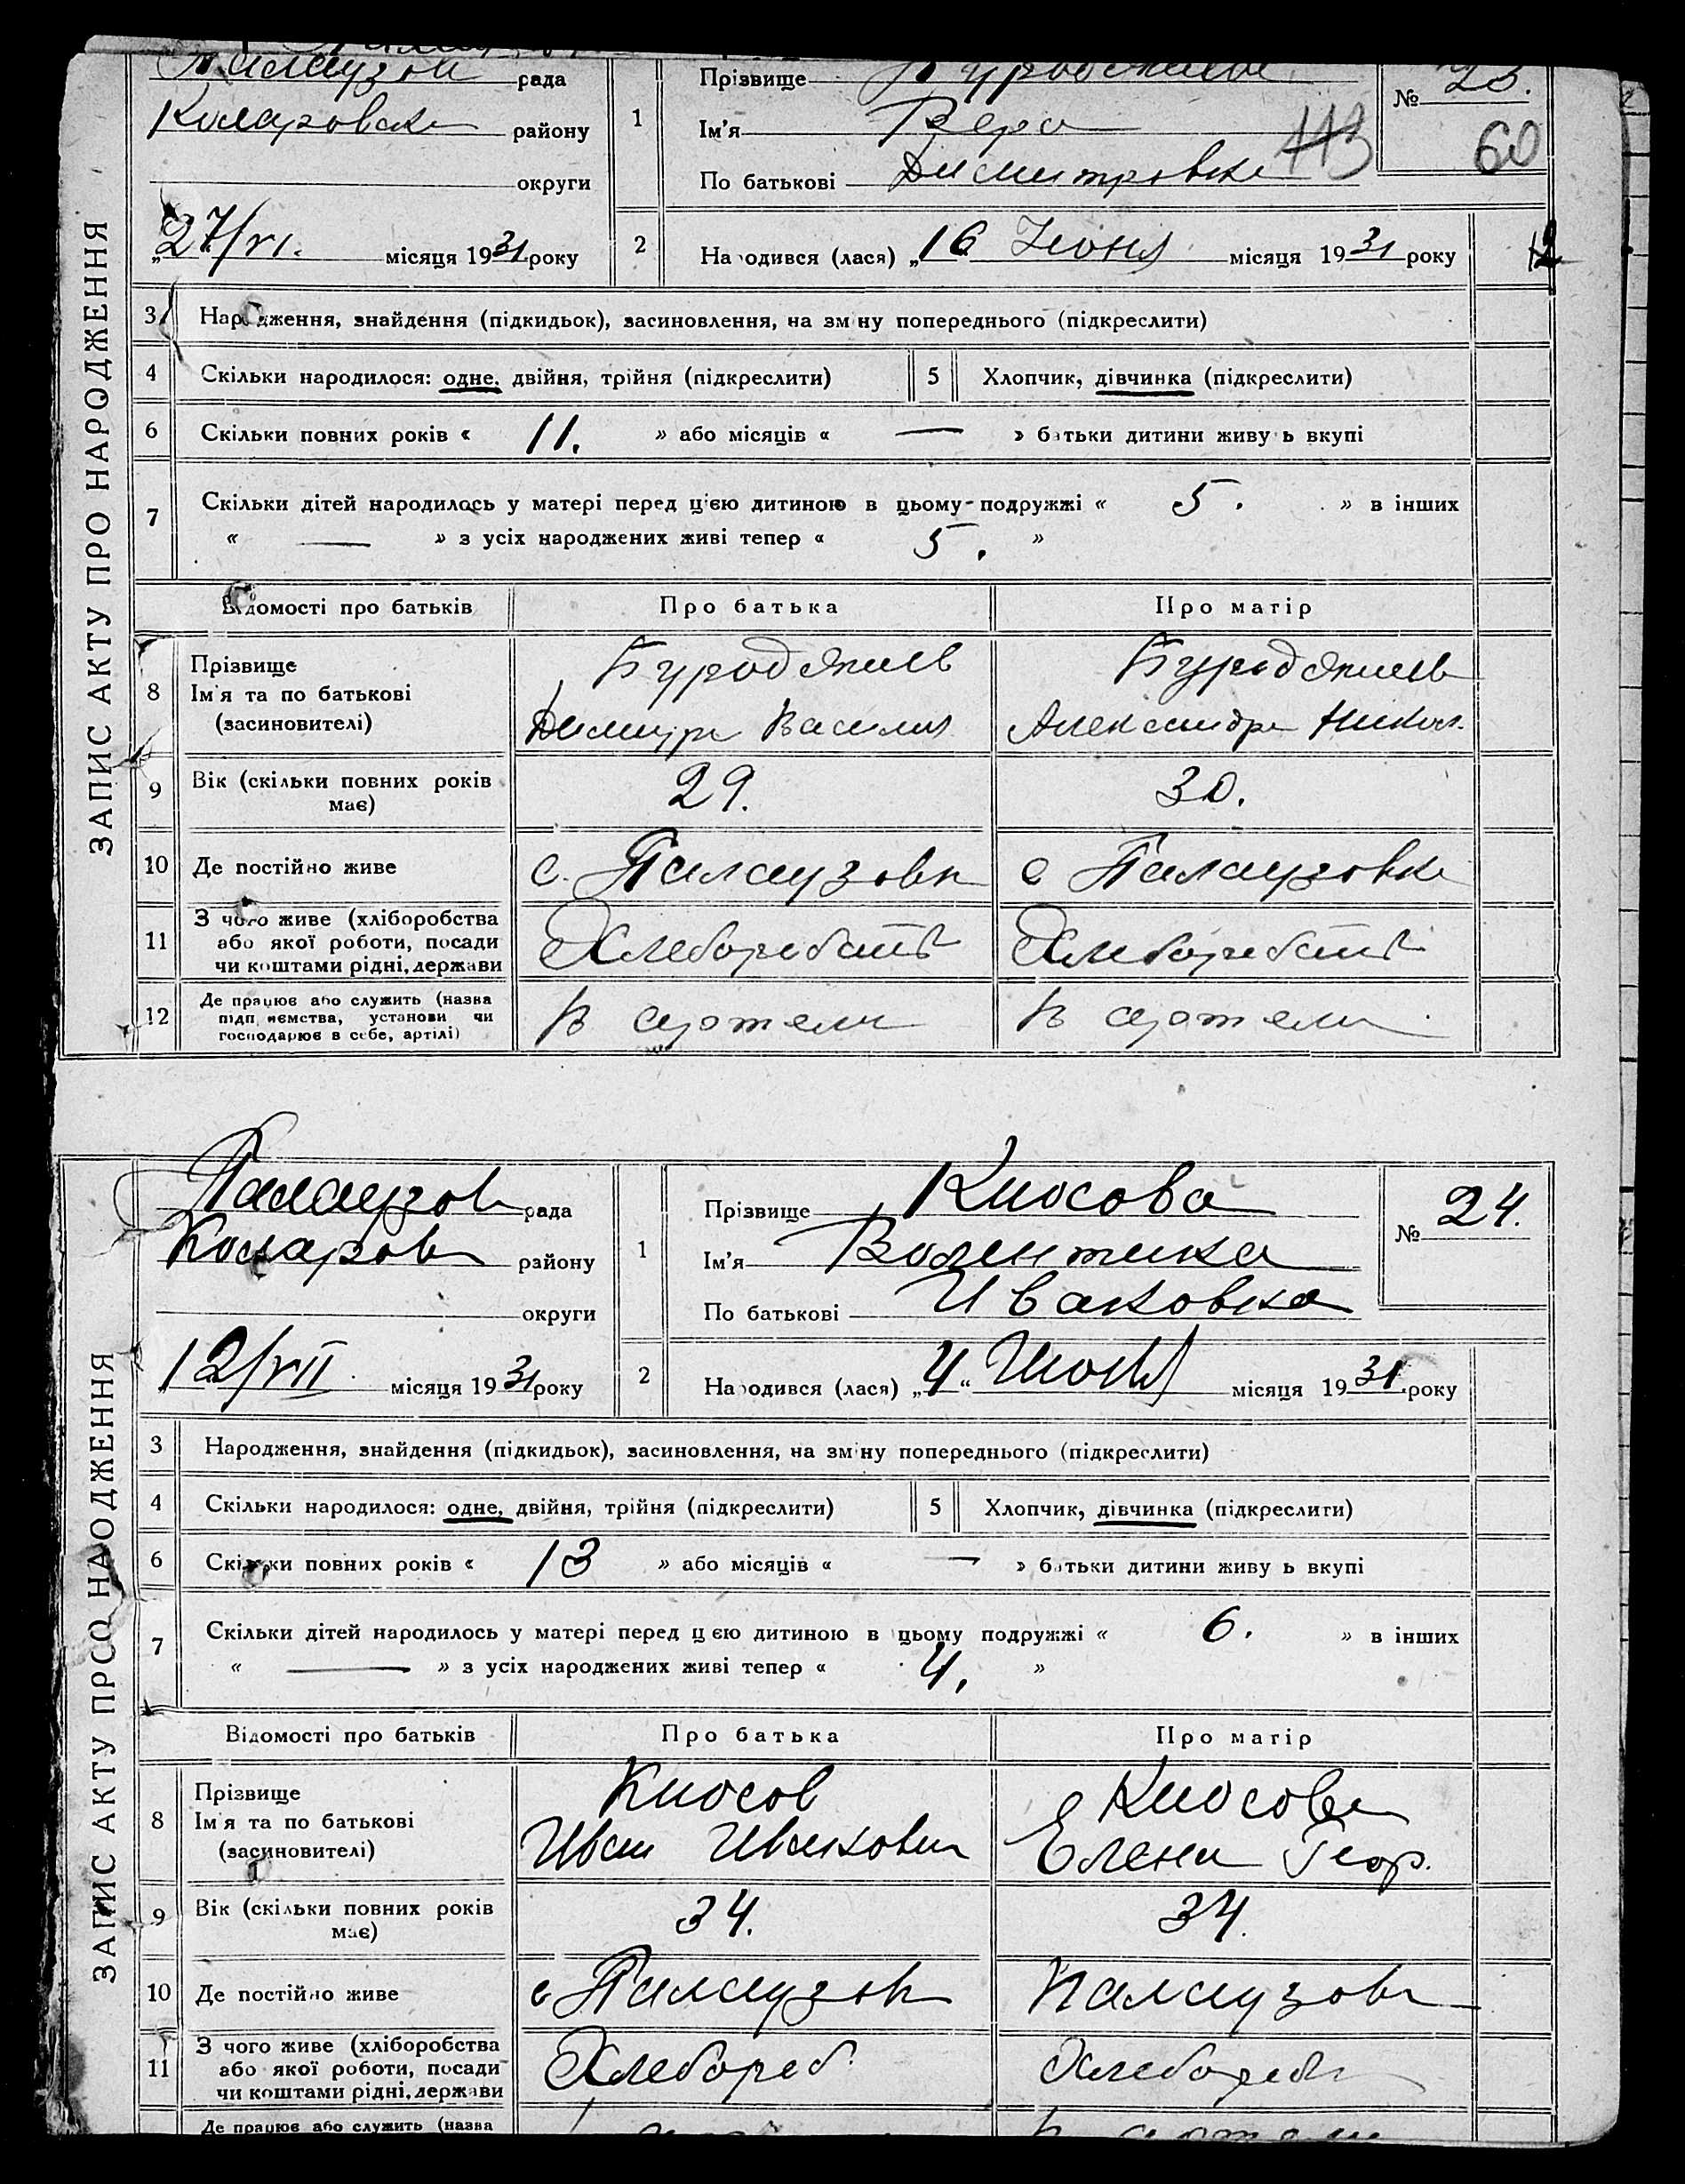 ЗАПИС АКТУ ПРО НАРОДЖЕННЯ
Палаузов рада
Коларовск району
округи
„27/VI. місяця 1931 року
1
Прізвище
Ім'я Вера
По батькові Димитровна
113
№ 23.
60
2 Народився (лася) „16 Июня місяця 1931 року
12
3 Народження, знайдення (підкидьок), засиновлення, на зміну попереднього (підкреслити)
4 Скільки народилося: одне, двійня, трійня (підкреслити)
5 Хлопчик, дівчинка (підкреслити)
6 Скільки повних років « 11. » або місяців « — » батьки дитини живуть вкупі
7 Скільки дітей народилось у матері перед цією дитиною в цьому подружжі « 5. » в інших
« — » з усіх народжених живі тепер « 5. »
Відомості про батьків Про батька Про матір
8 Прізвище
Ім'я та по батькові
(засиновителі)
Буроджиев
Димитр Василия
Буроджиев
Александра Никол.
9 Вік (скільки повних років
має)
29. 30.
10 Де постійно живе с. Палаузовк с Палаузовка
11 З чого живе (хліборобства
або якої роботи, посади
чи коштами рідні, держави
12 Де працює або служить (назва
підприємства, установи чи
господарює в себе, артілі)
В артели В артели
ЗАПИС АКТУ ПРО НАРОДЖЕННЯ
Палаузов рада
Коларов району
округи
„12/VII місяця 1931 року
1
Прізвище Киосова
Ім'я Валентина
По батькові Ивановна
№ 24.
2 Народився (лася) „4“ місяця 1931 року
3 Народження, знайдення (підкидьок), засиновлення, на зміну попереднього (підкреслити)
4 Скільки народилося: одне, двійня, трійня (підкреслити)
5 Хлопчик, дівчинка (підкреслити)
6 Скільки повних років « 13 » або місяців « — » батьки дитини живуть вкупі
7 Скільки дітей народилось у матері перед цією дитиною в цьому подружжі « 6. » в інших
« — » з усіх народжених живі тепер « 4. »
Відомості про батьків Про батька Про матір
8 Прізвище
Ім'я та по батькові
(засиновителі)
Киосов
Иван Иванович
Киосова
Елена Геор.
9 Вік (скільки повних років
має)
34. 34.
10 Де постійно живе с Палаузов Палаузов
11 З чого живе (хліборобства
або якої роботи, посади
чи коштами рідні, держави
Хлебороб Хлебороб
Де працює або служить (назва